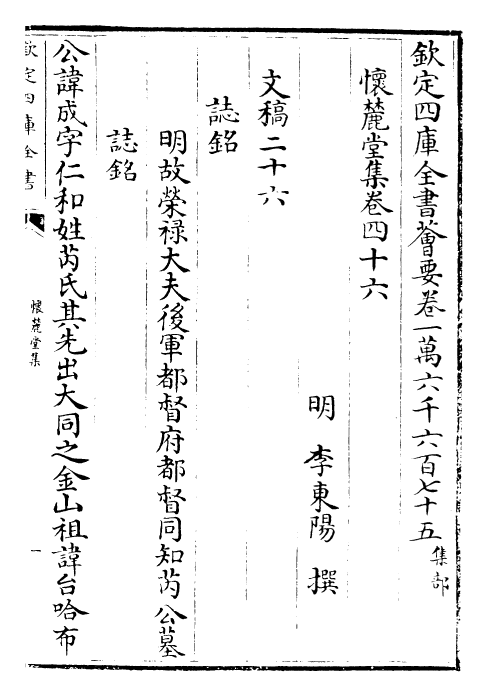 欽定四庫全書薈要卷一萬六千六百七十五集部
懷麓堂集卷四十六
明李東陽撰
文稿二十六
誌銘
明故榮禄大夫後軍都督府都督同知芮公墓
誌銘
公諱成字仁和姓芮氏其先出大同之金山祖諱台哈布
欽定四庫全書
懷麓堂集
一